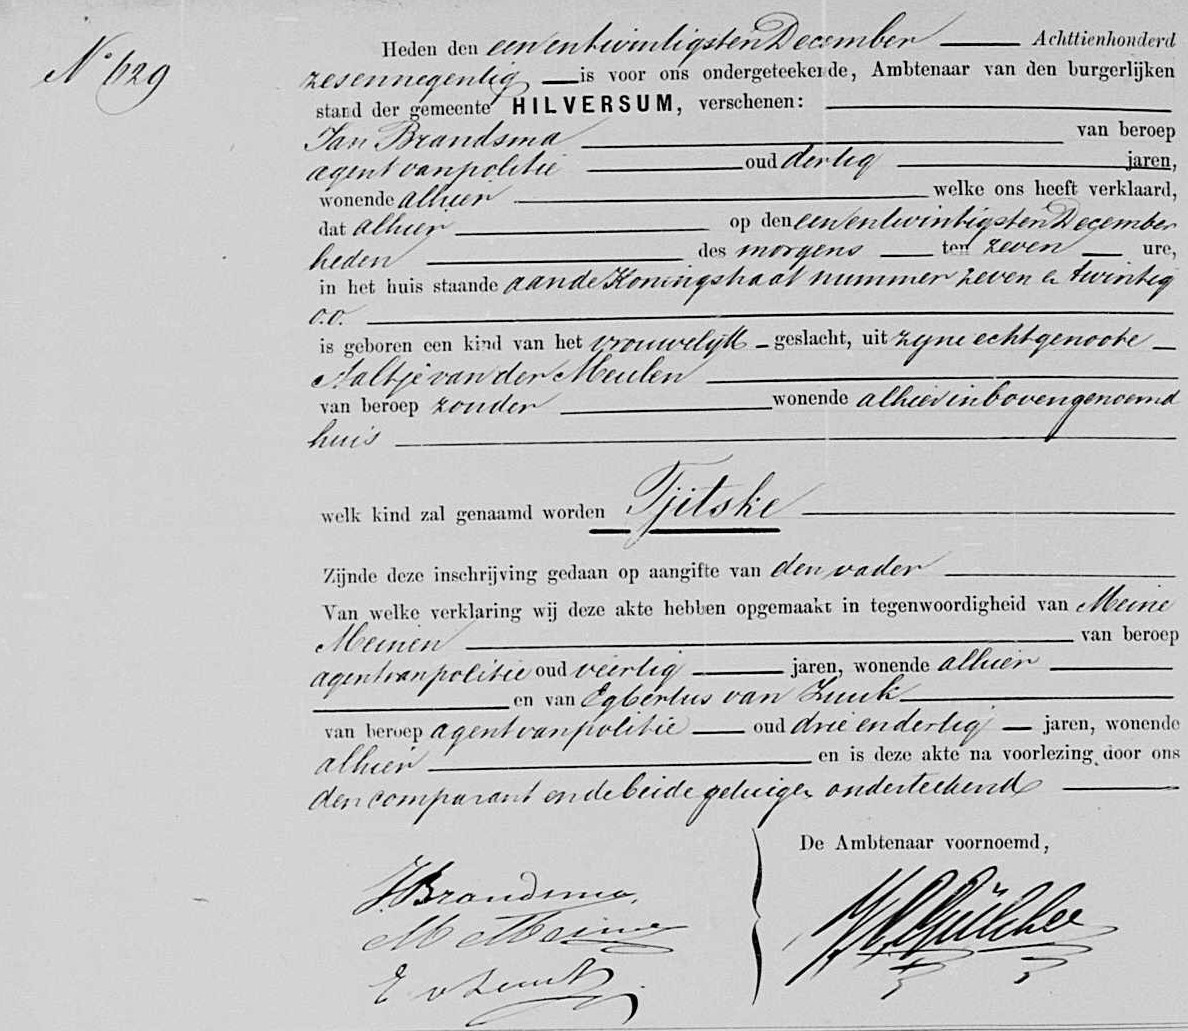 No 629
Heden den een en twintigsten December Achttienhonderd
zesennegentig is voor ons ondergeteekende, Ambtenaar van den burgerlijken
stand der gemeente HILVERSUM, verschenen:
Jan Brandsma van beroep
agent van politie oud dertig jaren,
wonende alhier welke ons heeft verklaard,
dat alhier op den een en twintigsten December
heden des morgens ten zeven ure,
in het huis staande aan de Koningstraat nummer zeven & twintig
o.o.
is geboren een kind van het vrouwelijk geslacht, uit zijne echtgenoote
Aaltje van der Meulen
van beroep zonder wonende alhier in bovengenoemd
huis
welk kind zal genaamd worden Tjitske
Zijnde deze inschrijving gedaan op aangifte van den vader
Van welke verklaring wij deze akte hebben opgemaakt in tegenwoordigheid van Meine
Meinen van beroep
agent van politie oud veertig jaren, wonende alhier
en van Egbertus van Zuuk
van beroep agent van politie oud drie en dertig jaren, wonende
alhier en is deze akte na voorlezing door ons
den comparant en de beide getuigen onderteekend
De Ambtenaar voornoemd,
J. Brandsma
M Meinen
E v Zuuk